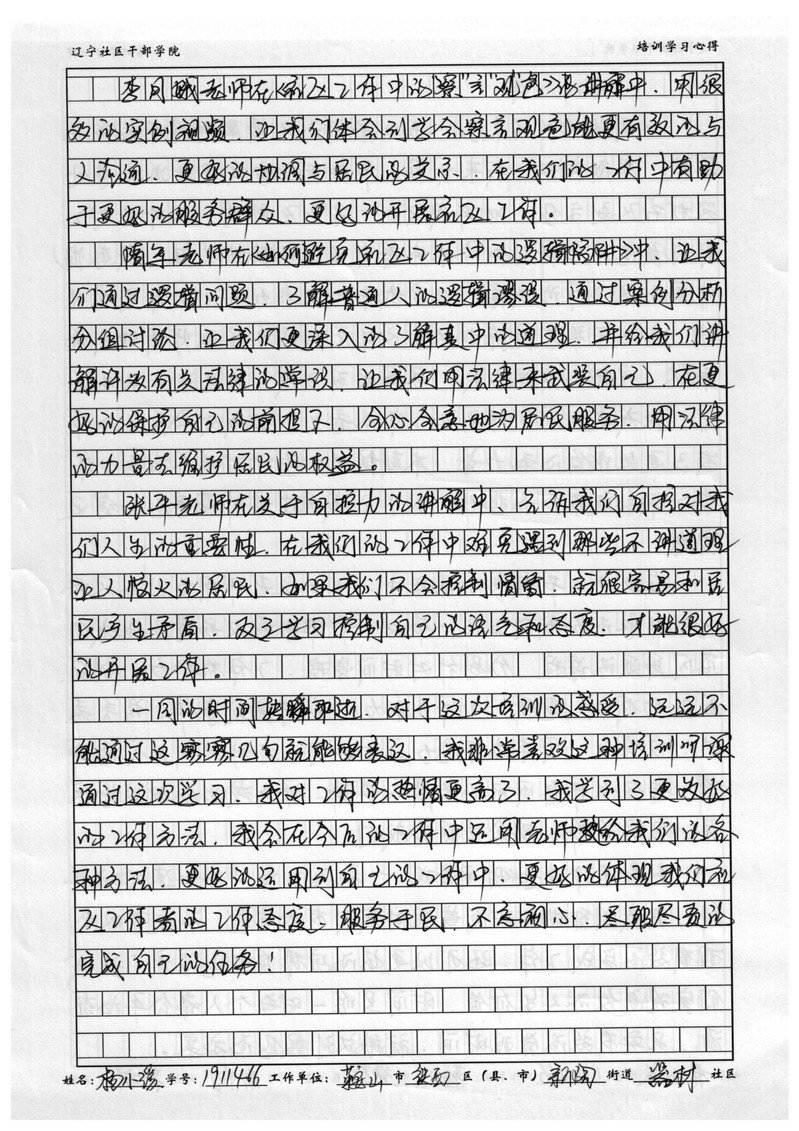 辽宁社区干部学院 培训学习心得
李月娥老师在《社区工作中的察"言"观"色"》讲解中，用很
多的实例视频，让我们体会到学会察言观色能更有效的与
人沟通，更好的协调与居民的关系，在我们的工作中有助
于更好的服务群众，更好的开展社区工作。
隋军老师在《如何避免社区工作中的逻辑陷阱》中，让我
们通过逻辑问题，了解普通人的逻辑谬误，通过案例分析
分组讨论，让我们更深入的了解其中的道理，并给我们讲
解许多有关法律的常识，让我们用法律来武装自己，在更
好的保护自己的前提下，全心全意地为居民服务，用法律
的力量去维护居民的权益。
张平老师在关于自控力的讲解中，告诉我们自控对我
们人生的重要性，在我们的工作中难免遇到那些不讲道理
让人恼火的居民，如果我们不会控制情绪，就很容易和居
民产生矛盾，反之学习控制自己的语气和态度，才能很好
的开展工作。
一周的时间转瞬即逝，对于这次培训的感受，远远不
能通过这寥寥几句就能够表达，我非常喜欢这种培训听课
通过这次学习，我对工作的热情更高了，我学到了更多好
的工作方法，我会在今后的工作中运用老师教给我们的各
种方法，更好的运用到自己的工作中，更好的体现我们社
区工作者的工作态度，服务于民，不忘初心，尽职尽责的
完成自己的任务！
姓名：杨小 学号：1911466 工作单位：鞍山 市 铁西 区（县、市） 新陶 街道 器材 社区